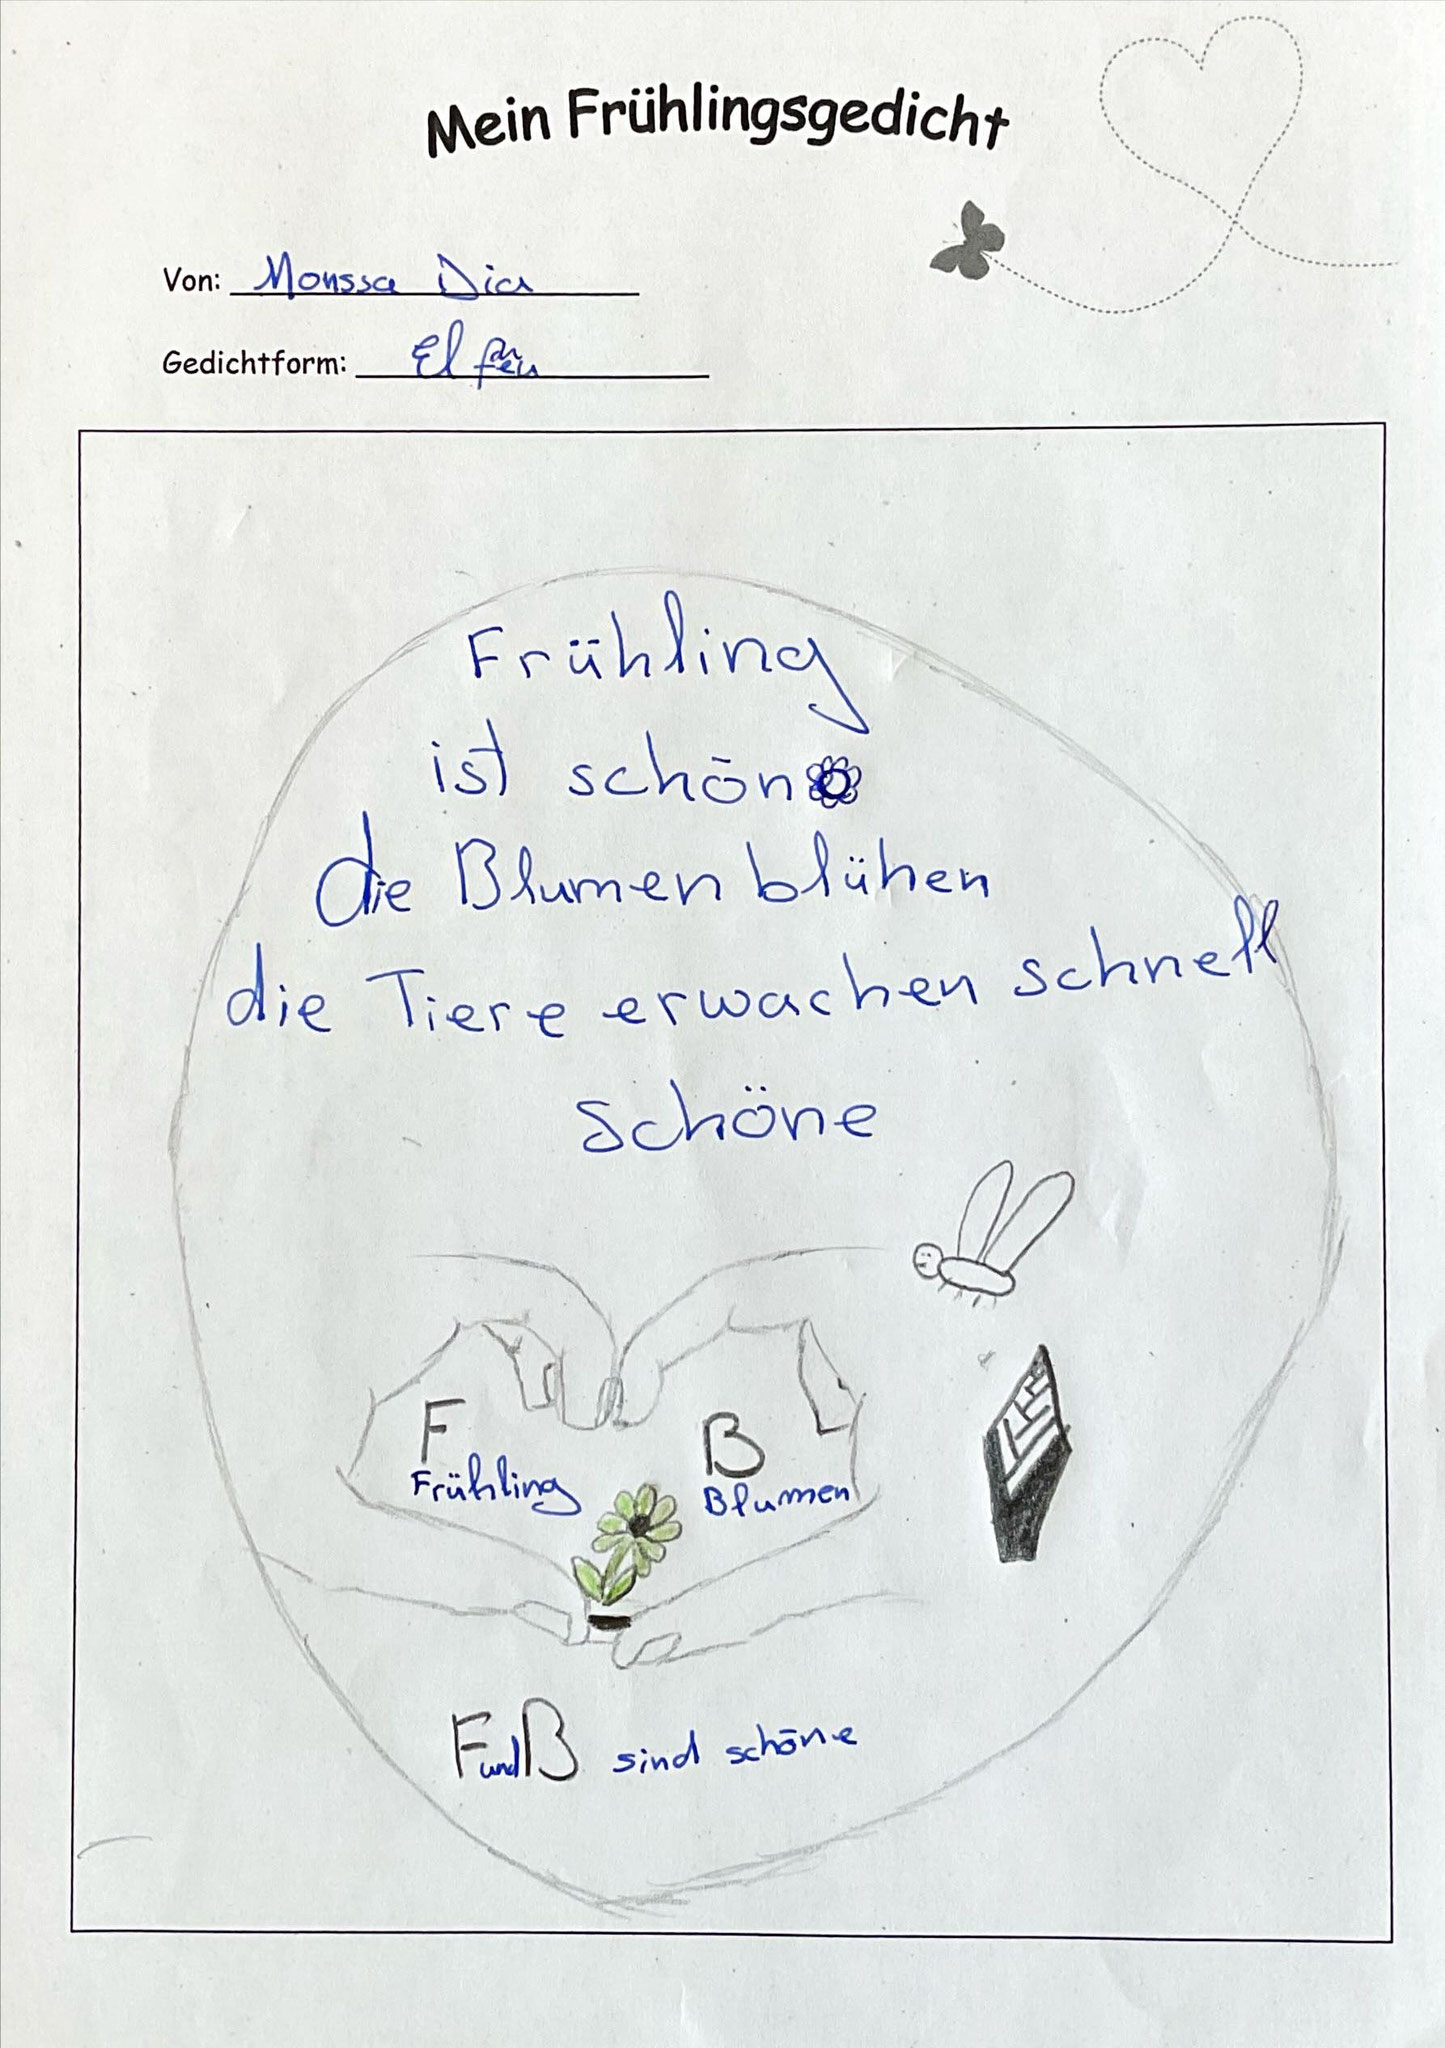 Mein Frühlingsgedicht
Von: Moussa Dia
Gedichtform: Elfchen
Frühling
ist schön
die Blumen blühen
die Tiere erwachen schnell
schöne
F B
Frühling Blumen
F und B sind schöne